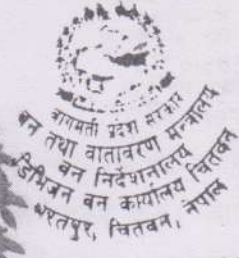 बागमती प्रदेश सरकार
वन तथा वातावरण मन्त्रालय
वन निर्देशनालय
डिभिजन वन कार्यालय चितवन
भरतपुर, चितवन, नेपाल